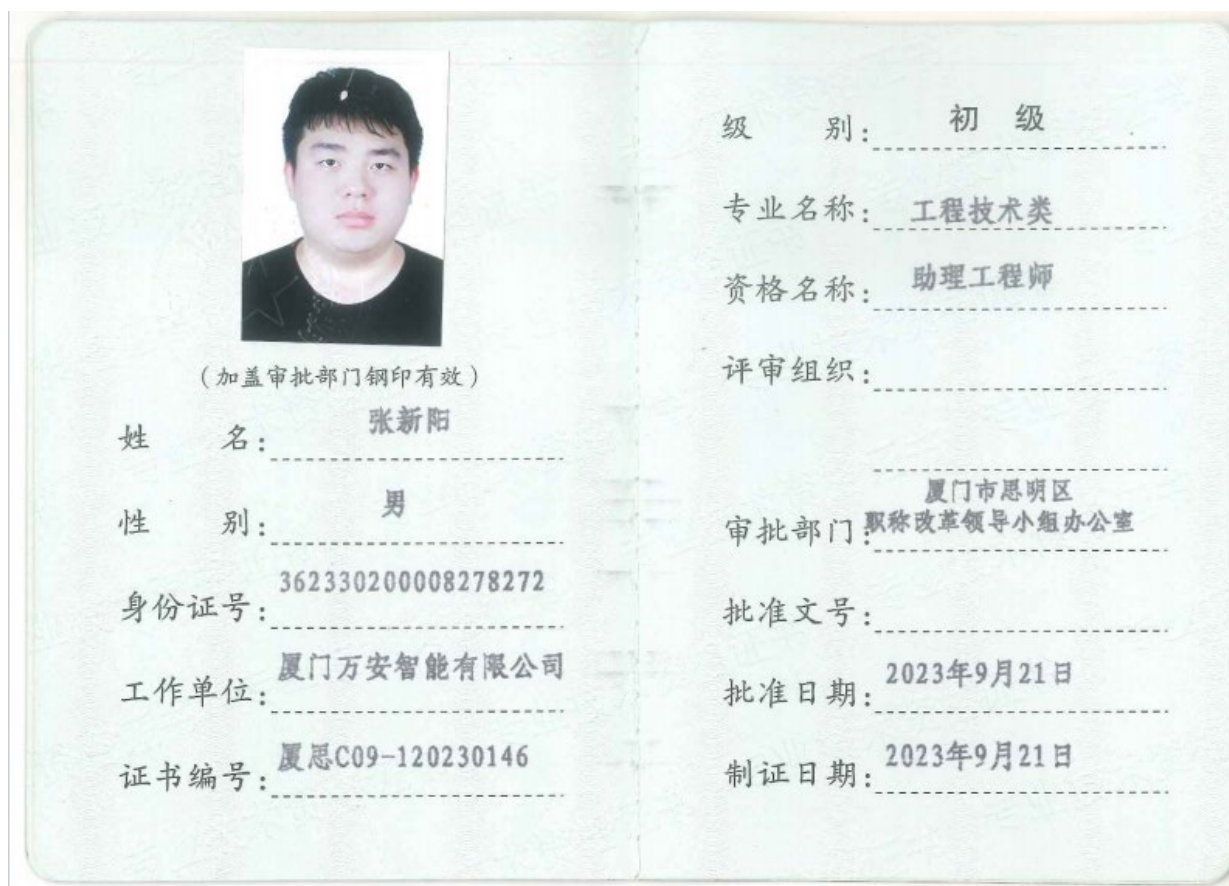 （加盖审批部门钢印有效）
姓 名：张新阳
性 别：男
身份证号：362330200008278272
工作单位：厦门万安智能有限公司
证书编号：厦思C09-120230146
级 别：初 级
专业名称：工程技术类
资格名称：助理工程师
评审组织：
厦门市思明区
审批部门：职称改革领导小组办公室
批准文号：
批准日期：2023年9月21日
制证日期：2023年9月21日